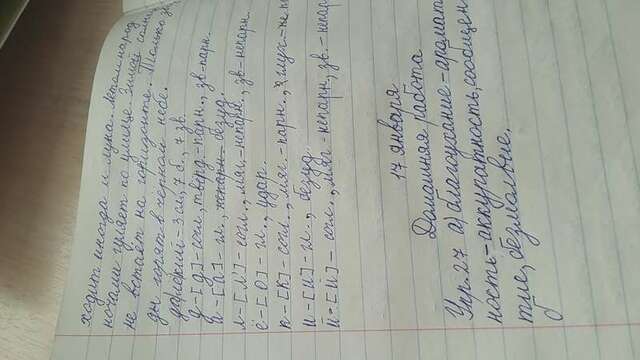 ходит иногда и луна. Летом народ
ночами гуляет по улице. Зимой солн
не встаёт на горизонте. Только зв
ды горят в чёрной небе.
далёкий - 3 сл., 7 б., 7 зв.
д - [д] - согл., твёрд. - парн., зв - парн.
а - [а] - гл., безуд.
л - [л'] - согл., мяг. - непарн., зв - непарн.
ё - [о] - гл., удар.
к - [к] - согл., мяг. - парн., глух -
и - [и] - гл., безуд.
й - [й] - согл., мягк - непарн, зв. - непар
17 января
Домашняя работа
Упр 27 а) благоухание - аромат
ность - аккуратность, сообщен
тие, безмолвие.